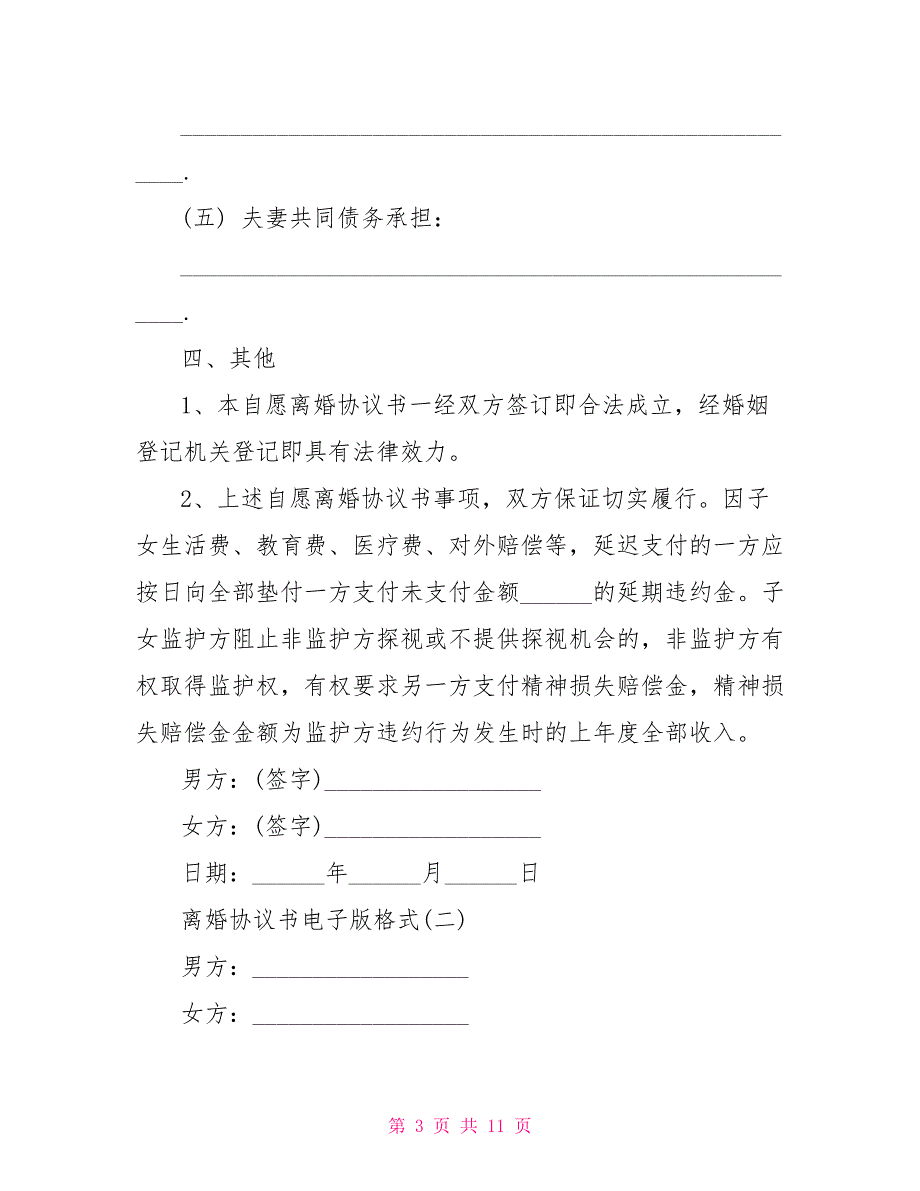 __________________________________________________
____.
(五) 夫妻共同债务承担：
__________________________________________________
____.
四、其他
1、本自愿离婚协议书一经双方签订即合法成立，经婚姻
登记机关登记即具有法律效力。
2、上述自愿离婚协议书事项，双方保证切实履行。因子
女生活费、教育费、医疗费、对外赔偿等，延迟支付的一方应
按日向全部垫付一方支付未支付金额______的延期违约金。子
女监护方阻止非监护方探视或不提供探视机会的，非监护方有
权取得监护权，有权要求另一方支付精神损失赔偿金，精神损
失赔偿金金额为监护方违约行为发生时的上年度全部收入。
男方：(签字)__________________
女方：(签字)__________________
日期：______年______月______日
离婚协议书电子版格式(二)
男方：__________________
女方：__________________
第 3 页 共 11 页